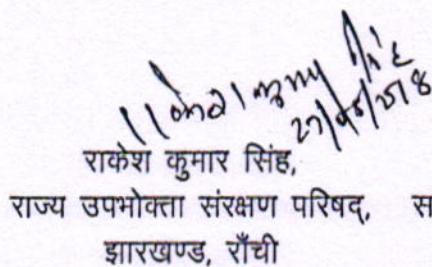 राकेश कुमार सिंह,
राज्य उपभोक्ता संरक्षण परिषद्, स
झारखण्ड, राँची